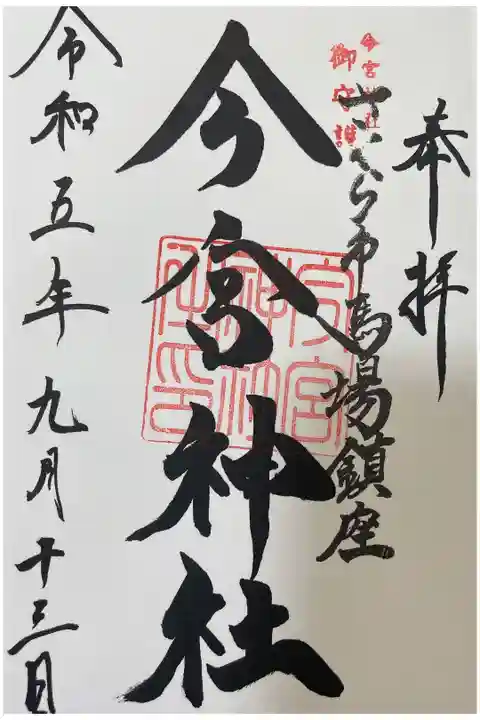 奉拝
さくら市馬場鎮座
今宮神社
御守護
今宮神社
令和五年九月十三日